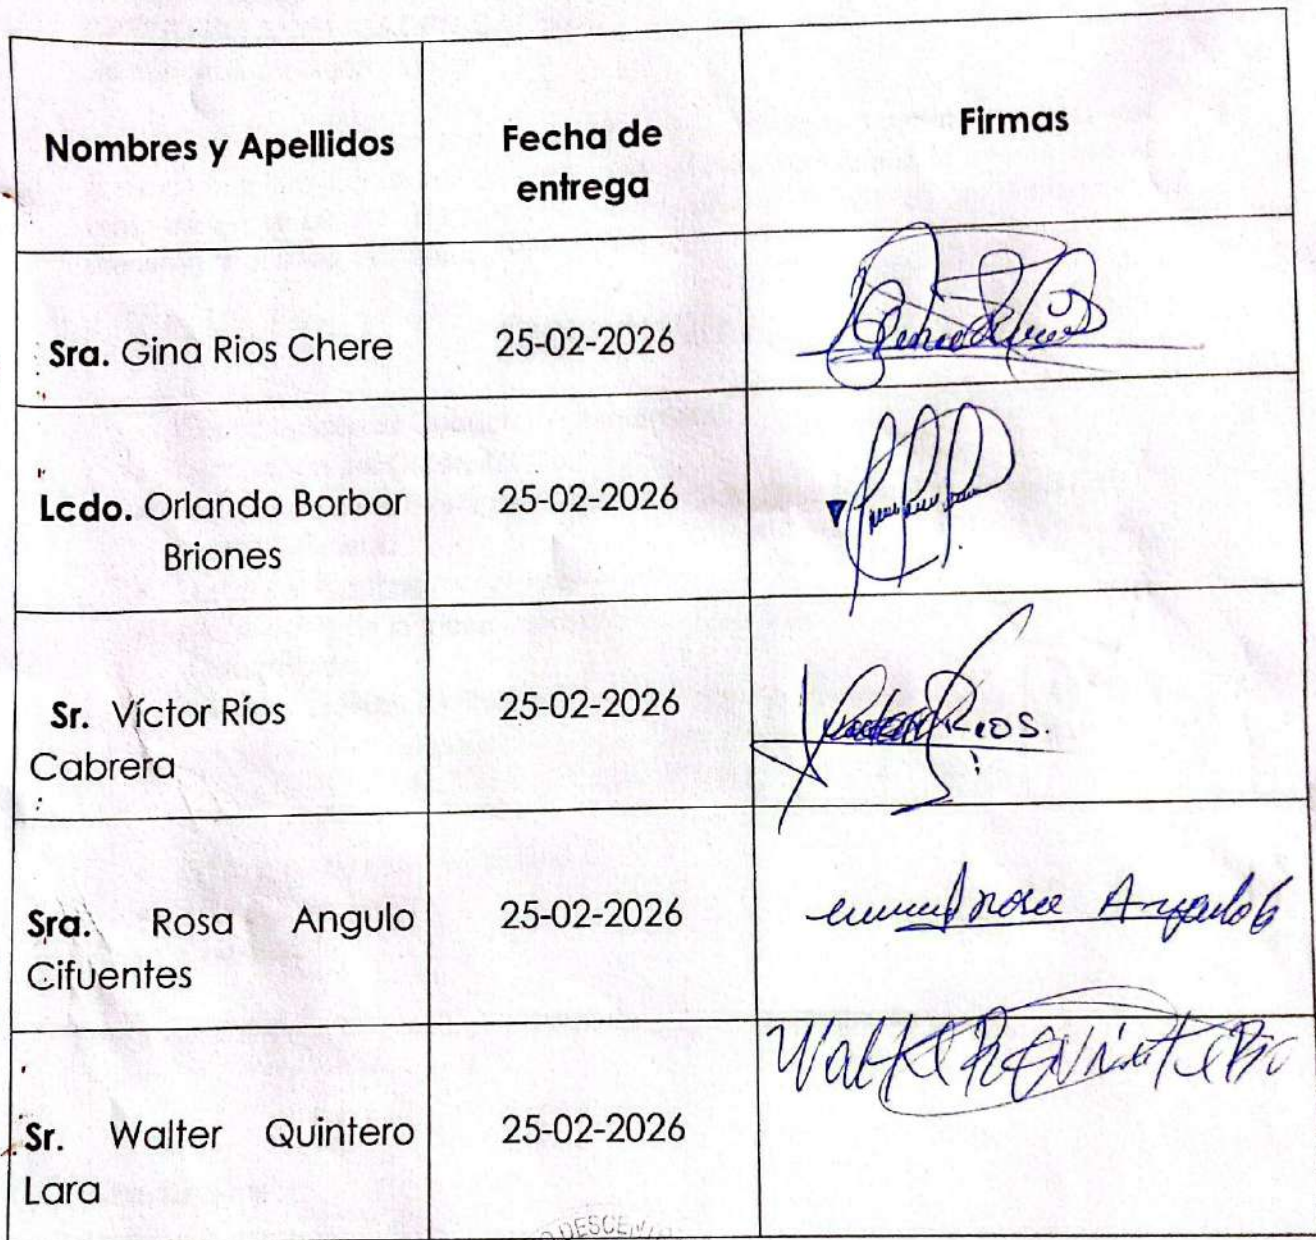 Nombres y Apellidos
Fecha de
entrega
Firmas
Sra. Gina Rios Chere
25-02-2026
Lcdo. Orlando Borbor
Briones
25-02-2026
Sr. Víctor Ríos
Cabrera
25-02-2026
Rios.
Sra. Rosa Angulo
Cifuentes
25-02-2026
rosa Angulo
Sr. Walter Quintero
Lara
25-02-2026